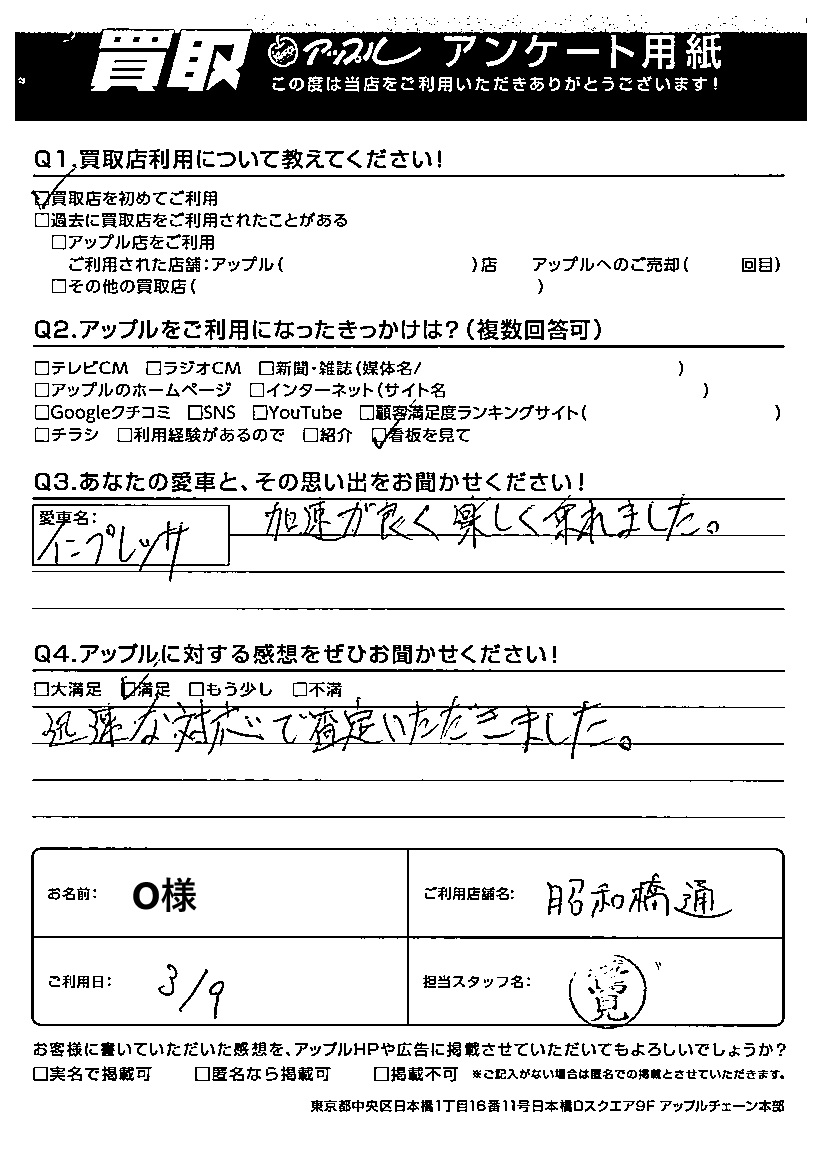 買取 アップル アンケート用紙
この度は当店をご利用いただきありがとうございます!
Q1.買取店利用について教えてください!
☑買取店を初めてご利用
□過去に買取店をご利用されたことがある
□アップル店をご利用
ご利用された店舗:アップル( )店 アップルへのご売却( 回目)
□その他の買取店( )
Q2.アップルをご利用になったきっかけは?(複数回答可)
□テレビCM □ラジオCM □新聞・雑誌(媒体名/ )
□アップルのホームページ □インターネット(サイト名 )
□Googleクチコミ □SNS □YouTube □顧客満足度ランキングサイト( )
□チラシ □利用経験があるので □紹介 ☑看板を見て
Q3.あなたの愛車と、その思い出をお聞かせください!
愛車名:
インプレッサ
加速が良く楽しく乗れました。
Q4.アップルに対する感想をぜひお聞かせください!
□大満足 ☑満足 □もう少し □不満
迅速な対応で査定いただきました。
お名前: O様 ご利用店舗名: 昭和橋通
ご利用日: 3/9 担当スタッフ名:
お客様に書いていただいた感想を、アップルHPや広告に掲載させていただいてもよろしいでしょうか?
□実名で掲載可 □匿名なら掲載可 □掲載不可 ※ご記入がない場合は匿名での掲載とさせていただきます。
東京都中央区日本橋1丁目16番11号日本橋Dスクエア9F アップルチェーン本部